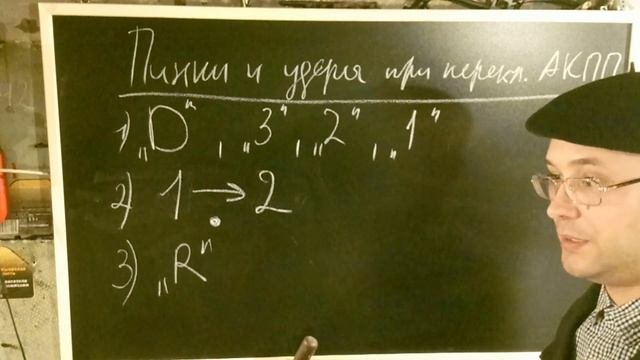 Пинки и удары при перекл. АКПП
1) „D", „3", „2", „1"
2) 1 → 2
3) „R"